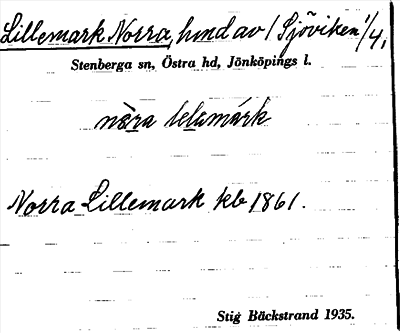 Lillemark Norra, hmd av 1 Sjöviken 1/4,
Stenberga sn, Östra hd, Jönköpings l.
nòra lelamárk
Norra Lillemark kb 1861.
Stig Bäckstrand 1935.